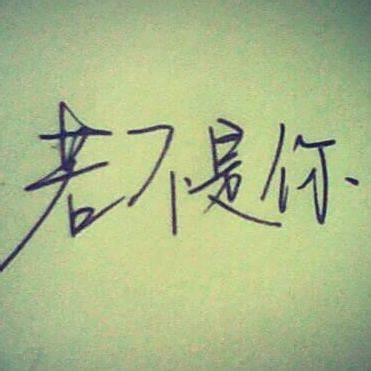 若不是你